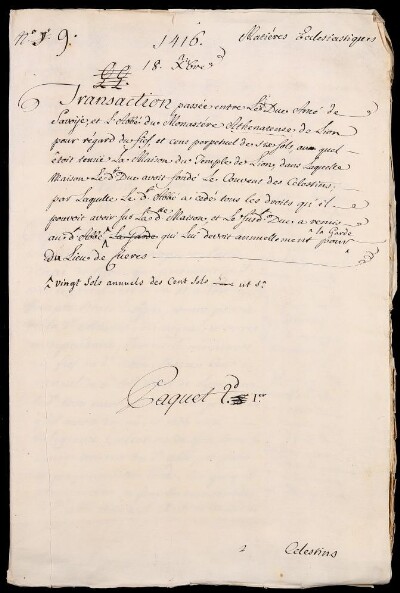 N.º 9. 1416. Matières Eclesiastiques
18. Xbre
Transaction passée entre Le d. Duc Amé de
Savoÿe, et l'Abbé du Monastère Athenatense de Lion
pour régard du fief, et cens perpetuel de six sols auquel
étoit tenüe La Maison du Temple de Lion, dans Laquelle
Maison Le d.t Duc avoit fondé Le Couvent des Célestins,
par Laquelle Le d.t Abbé a cédé tous les droits qu'il
pouvoir avoir sur La d.te Maison, et Le Susd.t Duc a remis
au d.t Abbé ^ La Garde qui Lui devoit annuellement pour ^ la Garde
Du Lieu de Cueres
^ vingt sols annuels des Cent sols ut s.ª
Paquet 2.d 1.er
2 Celestins